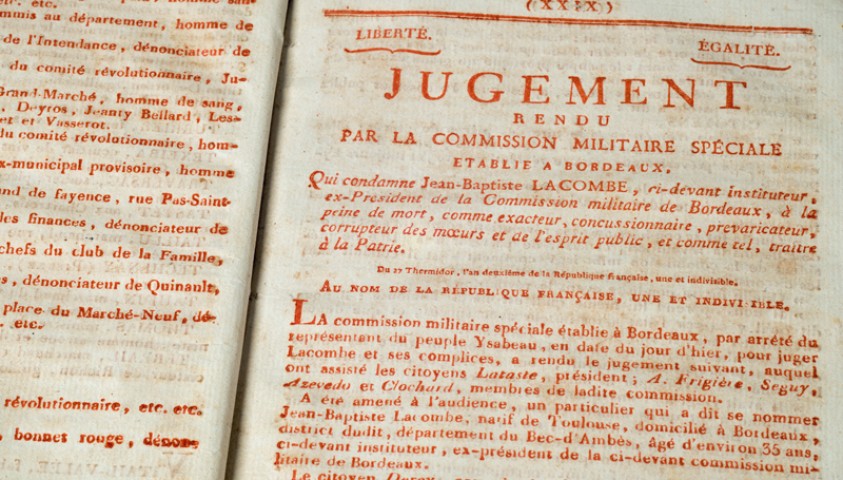 etc. etc.
mmis au département, homme de
de l'Intendance, dénonciateur de
du comité révolutionnaire, Ju-
Grand-Marché, homme de sang,
, Deyros, Jeanty Bellard, Les-
et et Vasserot.
du comité révolutionnaire, hom-
x-municipal provisoire, homme
and de fayence, rue Pas-Saint-
les finances, dénonciateur de
chefs du club de la Famille,
s, dénonciateur de Quinault,
place du Marché-Neuf, dé-
. etc.
révolutionnaire, etc. etc.
, bonnet rouge, dénon-
LIBERTÉ.
ÉGALITÉ.
JUGEMENT
RENDU
PAR LA COMMISSION MILITAIRE SPÉCIALE
ETABLIE A BORDEAUX,
Qui condamne Jean-Baptiste LACOMBE, ci-devant instituteur,
ex-Président de la Commission militaire de Bordeaux, à la
peine de mort, comme exacteur, concussionnaire, prevaricateur,
corrupteur des mœurs et de l'esprit public, et comme tel, traître
à la Patrie.
Du 27 Thermidor, l'an deuxième de la République française, une et indivisible.
AU NOM DE LA RÉPUBLIQUE FRANÇAISE, UNE ET INDIVISIBLE.
LA commission militaire spéciale établie à Bordeaux, par arrêté du
représentant du peuple Ysabeau, en date du jour d'hier, pour juger
Lacombe et ses complices, a rendu le jugement suivant, auquel
ont assisté les citoyens Lataste, président; A. Frigière, Seguy,
Azevedo et Clochard, membres de ladite commission.
A été amené à l'audience, un particulier qui a dit se nommer
Jean-Baptiste Lacombe, natif de Toulouse, domicilié à Bordeaux,
district dudit, département du Bec-d'Ambès, âgé d'environ 35 ans,
ci-devant instituteur, ex-président de la ci-devant commission mi-
litaire de Bordeaux.
Le citoyen